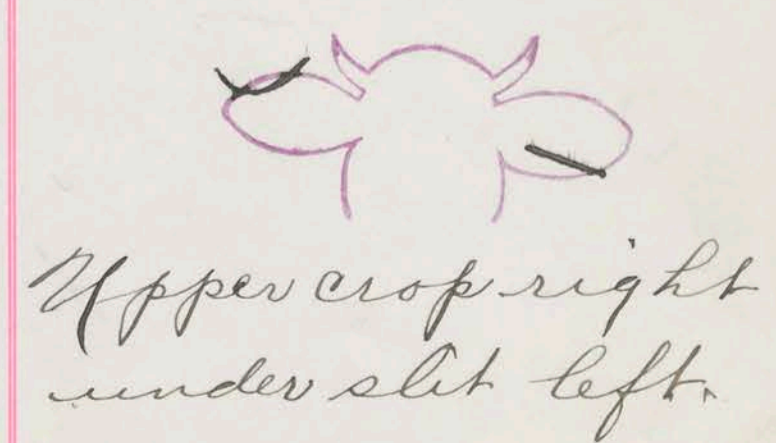 Upper crop right
under slit left.